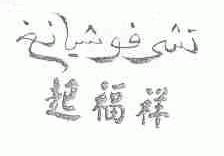 تشي فو شيانغ
起福祥